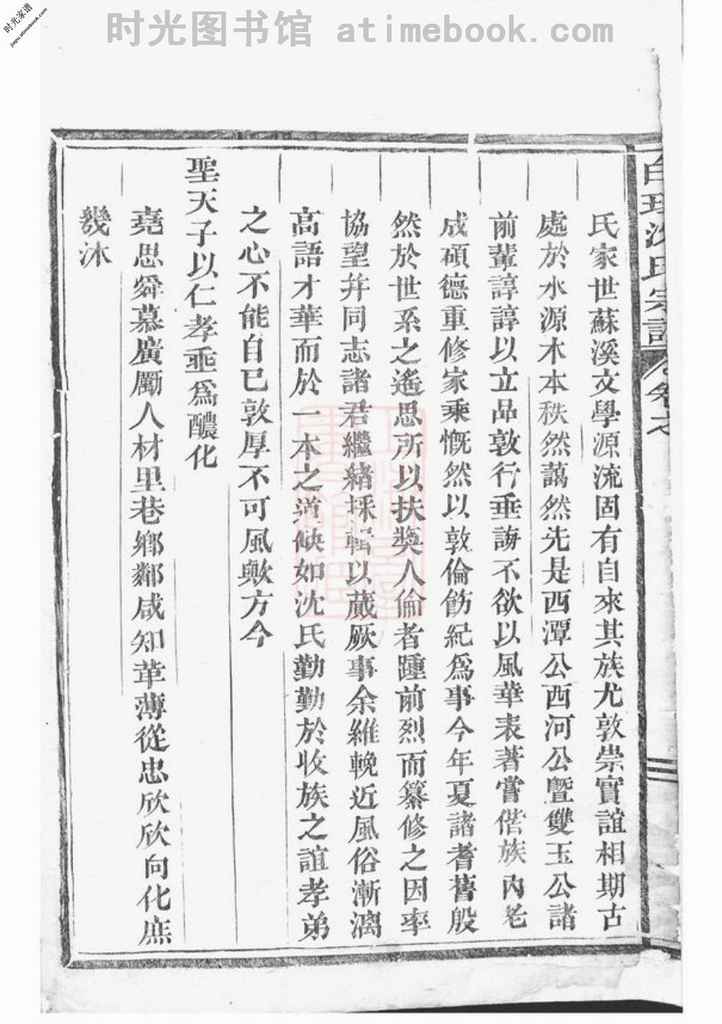 时光图书馆 atimebook.com
时光家谱
jiapu.atimebook.com
沈氏宗譜 卷之
氏家世蘇溪文學源流固有自來其族尤敦崇實誼相期古
處於水源木本秩然藹然先是西潭公西河公暨雙玉公諸
前輩諄諄以立品敦行垂訓不欲以風華表著嘗偕族內老
成碩德重修家乘慨然以敦倫飭紀爲事今年夏諸耆舊殷
然於世系之遙思所以扶奬人倫者踵前烈而纂修之因率
協望并同志諸君繼緒採輯以蕆厥事余維輓近風俗漸漓
高語才華而於一本之道缺如沈氏勤勤於收族之誼孝弟
之心不能自已敦厚不可風歟方今
聖天子以仁孝垂爲醲化
堯思舜慕廣勵人材里巷鄉鄰咸知革薄從忠欣欣向化庶
幾沐